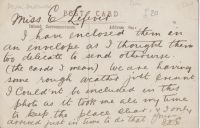 POST CARD
Miss E
I have enclosed them in
an envelope as I thought them
too delicate to send otherwise
(the cards I mean) we are having
some rough weather just
I could not be included in this
photo as it took me all my time
to keep the place clear. I only
arrived just in time to do that